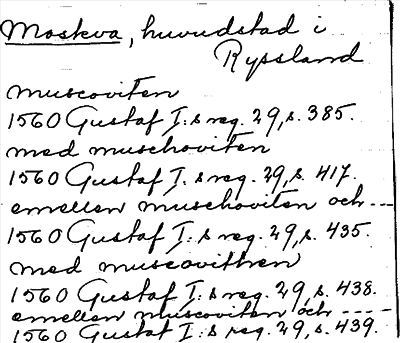 Moskva, huvudstad i
Ryssland
muscoviten
1560 Gustaf I:s reg. 29, s. 385.
med muschoviten
1560 Gustaf I:s reg. 29, s. 417.
emellen muschoviten och ---
1560 Gustaf I:s reg. 29, s. 435.
med muscovithren
1560 Gustaf I:s reg. 29, s. 438.
emellen muscoviten och ----
1560 Gustaf I:s reg. 29, s. 439.